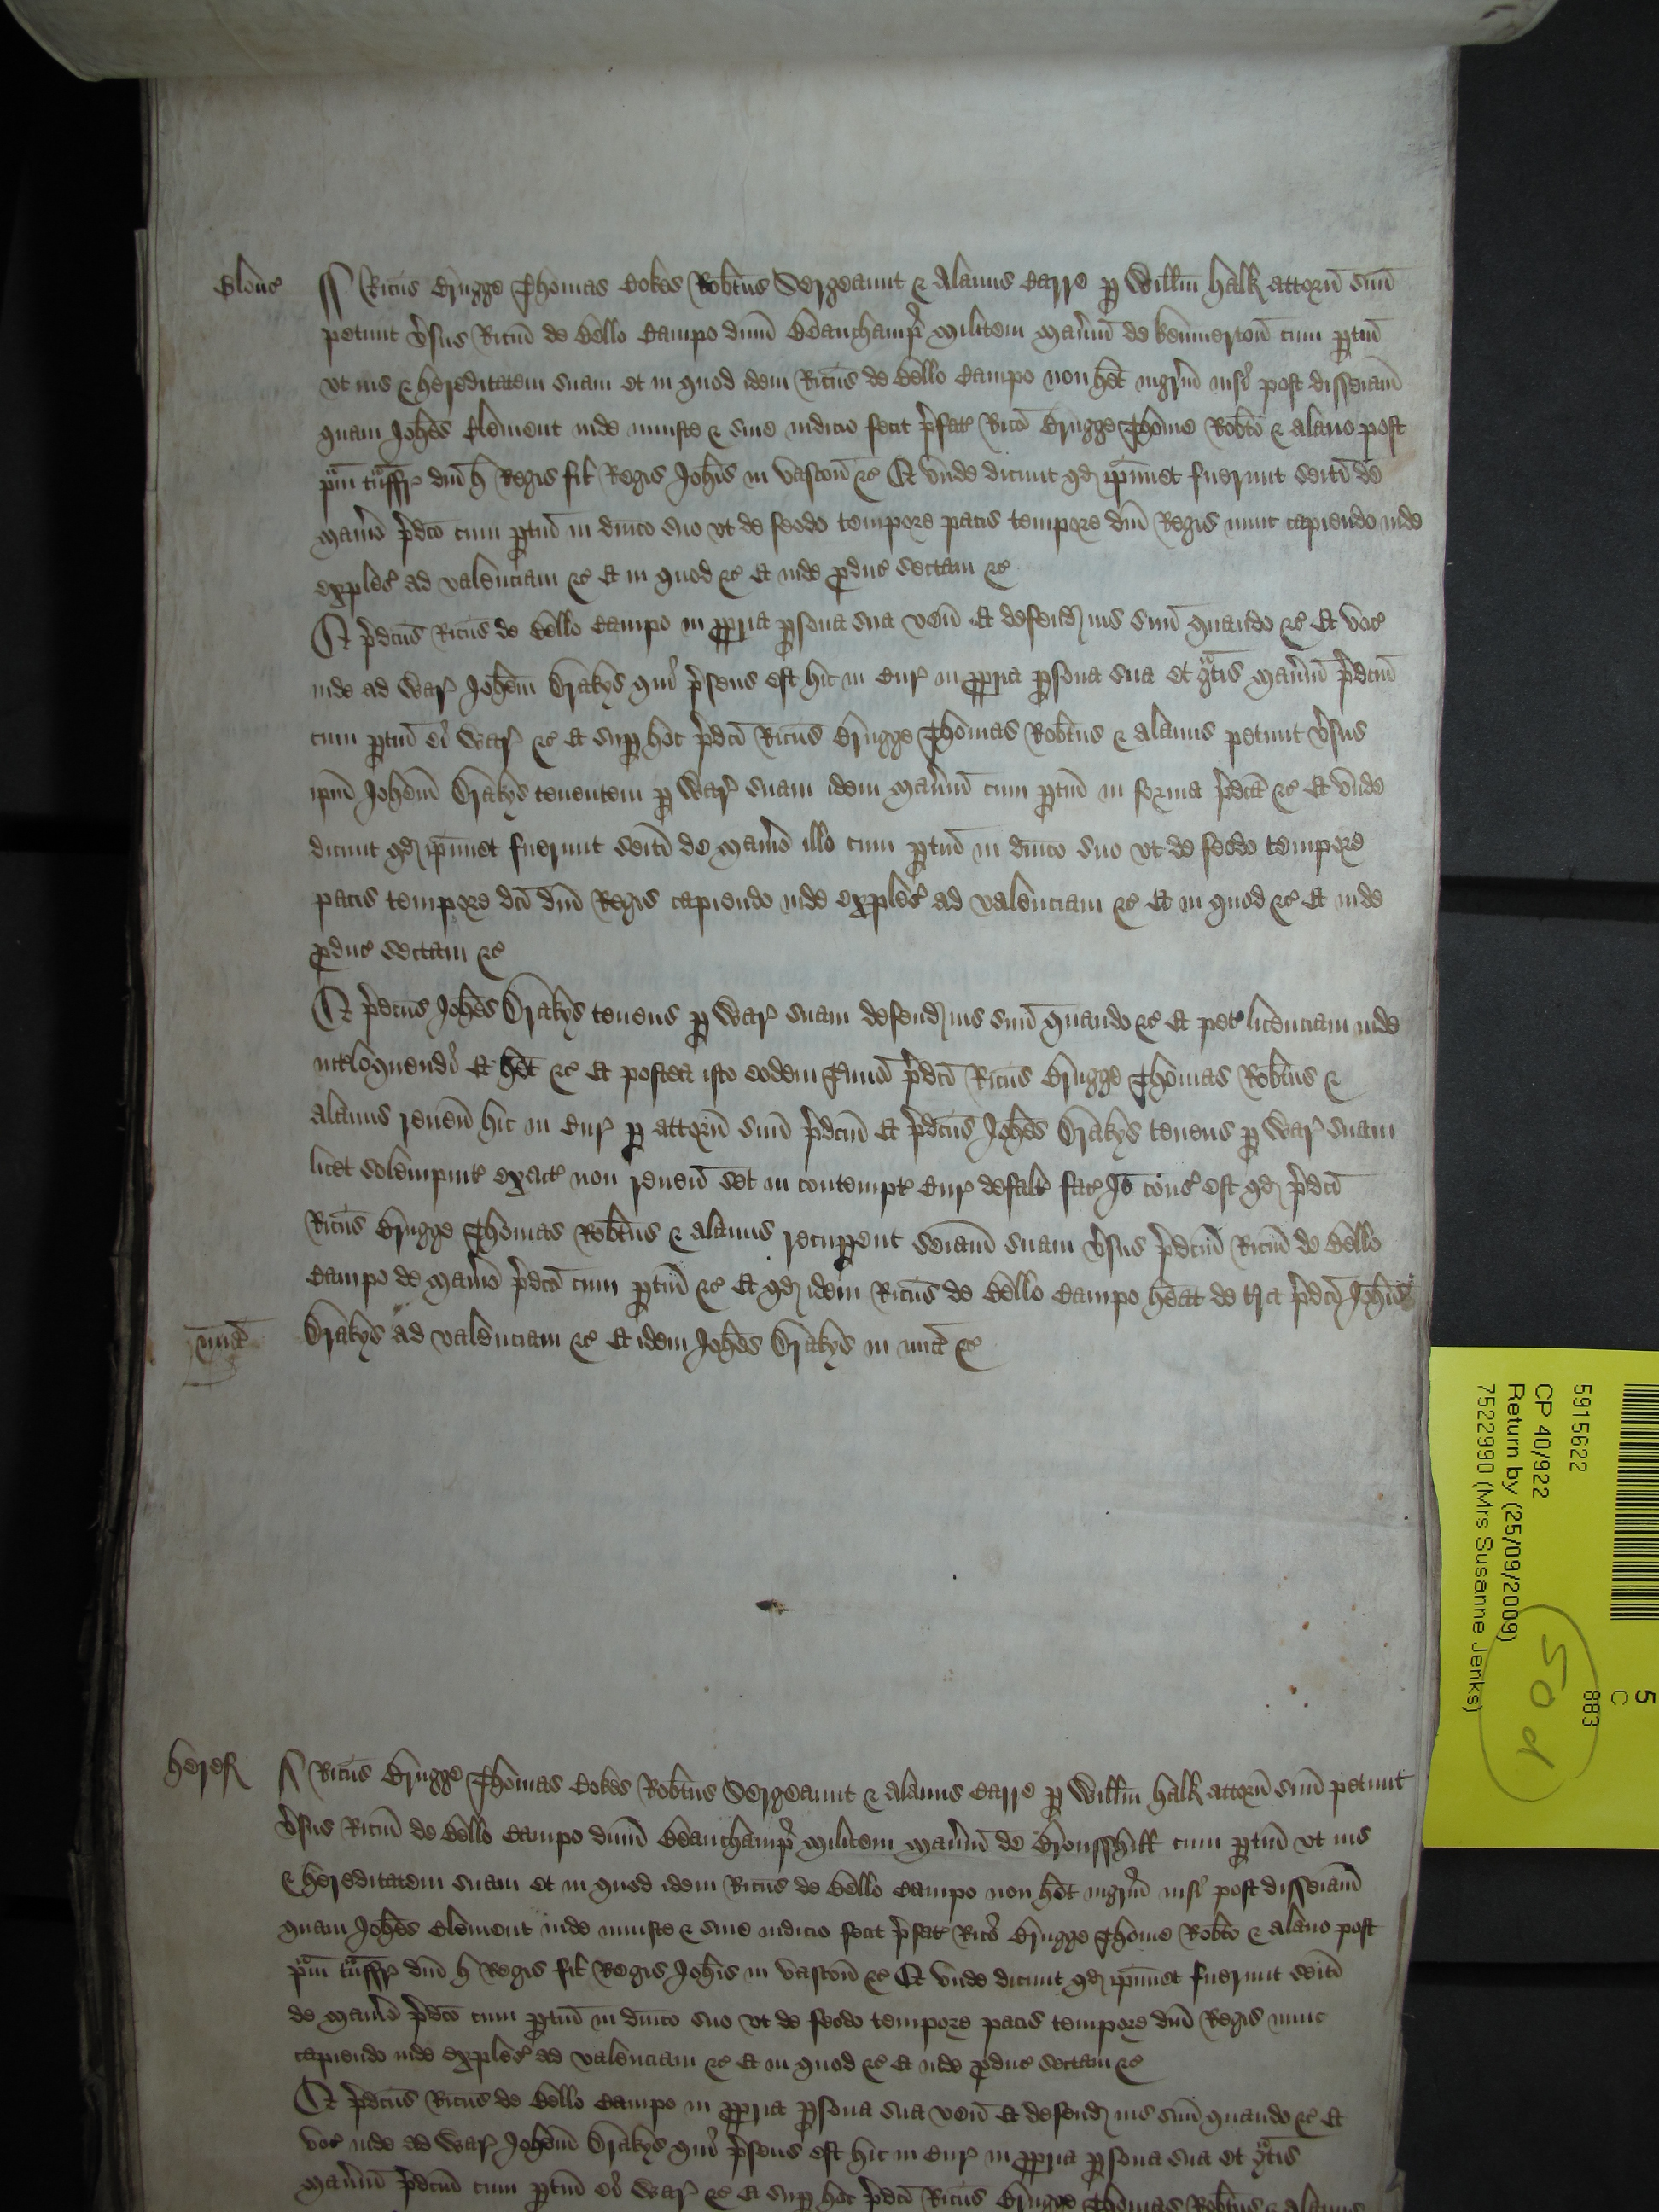 Glouc
ss Ricus Brugge Thomas Cokes Robtus Sergeaunt & Alanus Carre p Willm Halk attorn suu
petunt vsus Ricm de Bello Campo dnm Beauchamp militem maniu de Kenmerton cum ptin
vt ius & hereditatem suam et in quod idem Ricus de Bello Campo non het ingrm nisi post disseiam
quam Johes Clement inde iniuste & sine iudicio fecit pfat Rico Brugge Thome Robto & Alano post
pm tnsfr dni H Regis fil Regis Johis in Vascon &c Et vnde dicunt qd ipimet fuerunt seiti de
manio pdco cum ptin in dnico suo vt de feodo tempore pacis tempore dni Regis nunc capiendo inde
exples ad valenciam &c Et in quod &c Et inde pduc sectam &c
Et pdcus Ricus de Bello Campo in ppria psona sua ven Et defend ius suu quando &c Et voc
inde ad War Johem Brakys qui psens est hic in Cur in ppria psona sua et gtis maniu pdcm
cum ptin ei War &c Et sup hoc pdci Ricus Brugge Thomas Robtus & Alanus petunt vsus
ipm Johem Brakys tenentem p War suam idem maniu cum ptin in forma pdca &c Et vnde
dicunt qd ipimet fuerunt seiti de manio illo cum ptin in dnico suo vt de feodo tempore
pacis tempore dci dni Regis capiendo inde exples ad valenciam &c Et in quod &c Et inde
pduc sectam &c
Et pdcus Johes Brakys tenens p War suam defend ius suu quando &c Et pet licenciam inde
intloquendi Et het &c Et postea isto eodem Tmio pdci Ricus Brugge Thomas Robtus &
Alanus reven hic in Cur p attorn suu pdcm Et pdcus Johes Brakys tenens p War suam
licet solempnit exact non reven set in contempt Cur defalt fac Io cons est qd pdci
Ricus Brugge Thomas Robtus & Alanus recupent seiam suam vsus pdcm Ricm de Bello
Campo de manio pdco cum ptin &c Et qd idem Ricus de Bello Campo heat de tra pdci Johis
mia Brakys ad valenciam &c Et idem Johes Brakys in mia &c
Heref
ss Ricus Brugge Thomas Cokes Robtus Sergeaunt & Alanus Carre p Willm Halk attorn suu petunt
vsus Ricm de Bello Campo dnm Beauchamp militem maniu de cum ptin vt ius
& hereditatem suam et in quod idem Ricus de Bello Campo non het ingrm nisi post disseiam
quam Johes Clement inde iniuste & sine iudicio fecit pfat Rico Brugge Thome Robto & Alano post
pm tnsfr dni H Regis fil Regis Johis in Vascon &c Et vnde dicunt qd ipimet fuerunt seiti
de manio pdco cum ptin in dnico suo vt de feodo tempore pacis tempore dni Regis nunc
capiendo inde exples ad valenciam &c Et in quod &c Et inde pduc sectam &c
Et pdcus Ricus de Bello Campo in ppria psona sua ven Et defend ius suu quando &c Et
voc inde ad War Johem Brakys qui psens est hic in Cur in ppria psona sua et gtis
maniu pdcm cum ptin ei War &c Et sup hoc pdci Ricus Brugge Thomas Robtus & Alanus
5915622
CP 40/922
Return by (25/09/2009)
7522990 (Mrs Susanne Jenks)
5
C
883
50 d